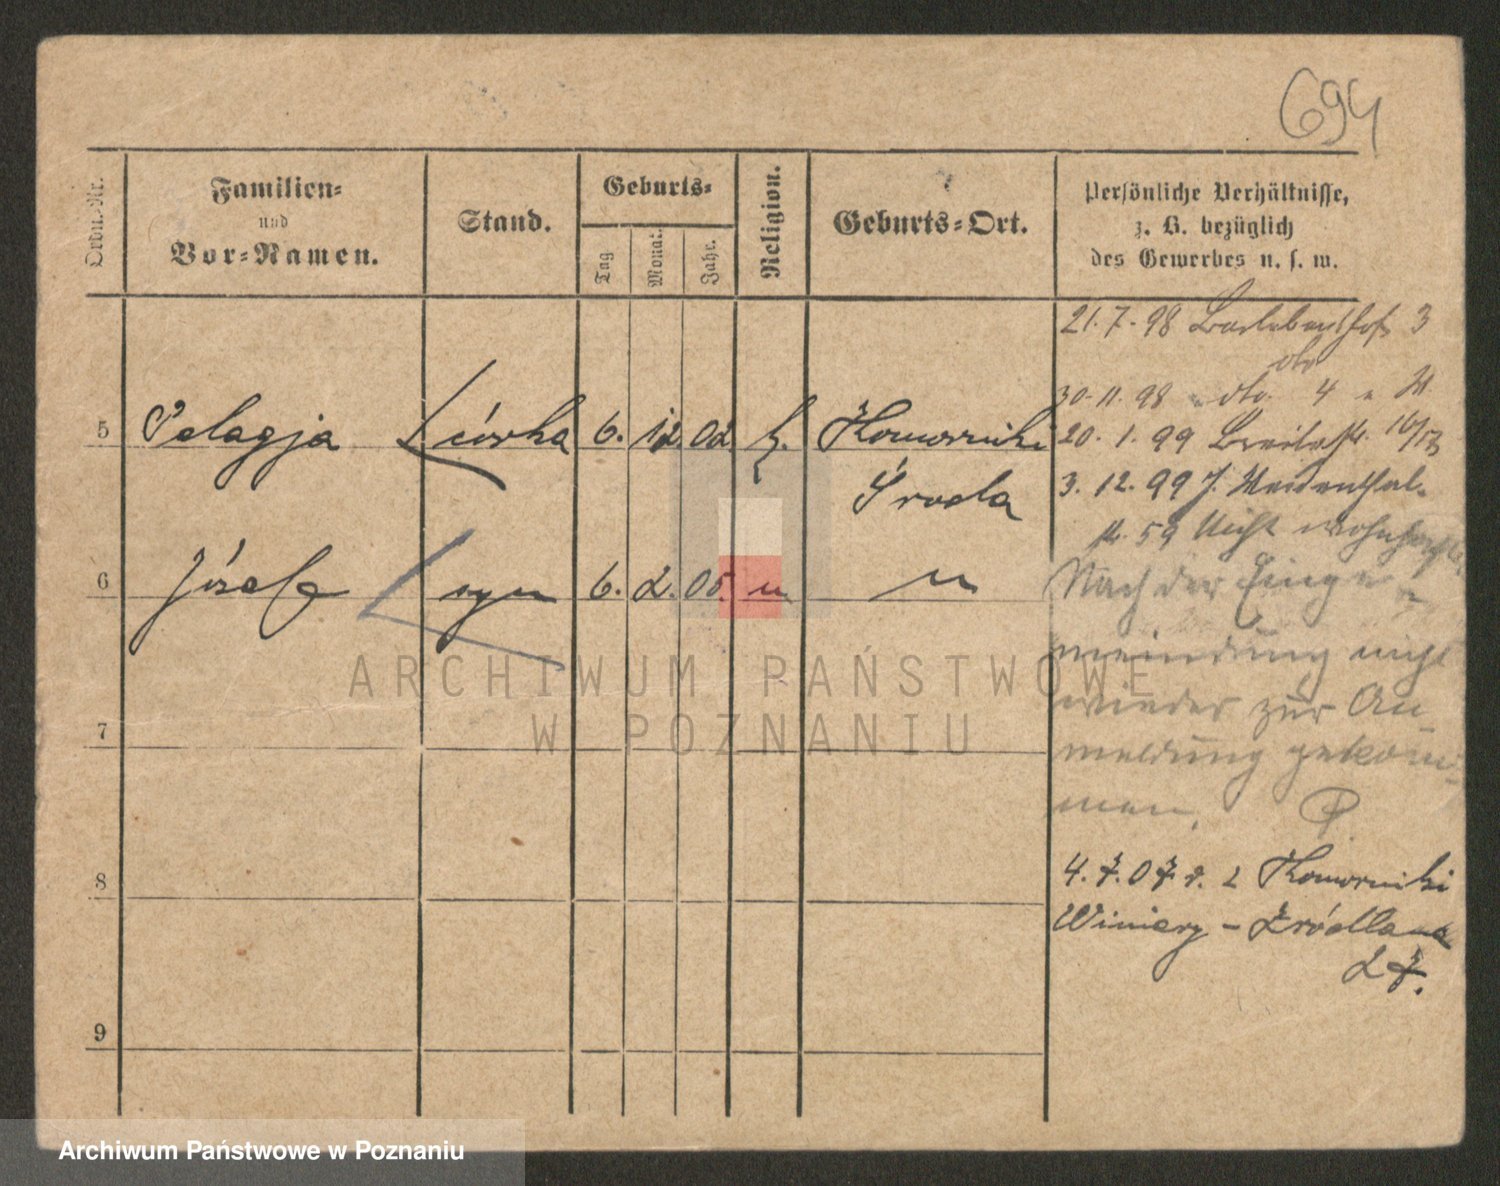 694
Ordn.-Nr.
Familien-
und
Vor-Namen.
Stand.
Geburts-
Tag
Monat
Jahr.
Religion.
Geburts-Ort.
Persönliche Verhältnisse,
z. B. bezüglich
des Gewerbes u. s. w.
21.7.98 3
30.11.98 dto. 4
5 Pelagja córka 6. 12 02 k. Komorniki
20. 1. 99
Środa
3. 12. 99
59 Nicht wohnhaft
6 Józef syn 6. 2. 05. " "
Nach der
nicht
wieder zur An-
meldung gekom-
men.
7
8
4.7.07 r. z Komorniki
Winiary - Źródlana
27.
9
ARCHIWUM PAŃSTWOWE
W POZNANIU
Archiwum Państwowe w Poznaniu